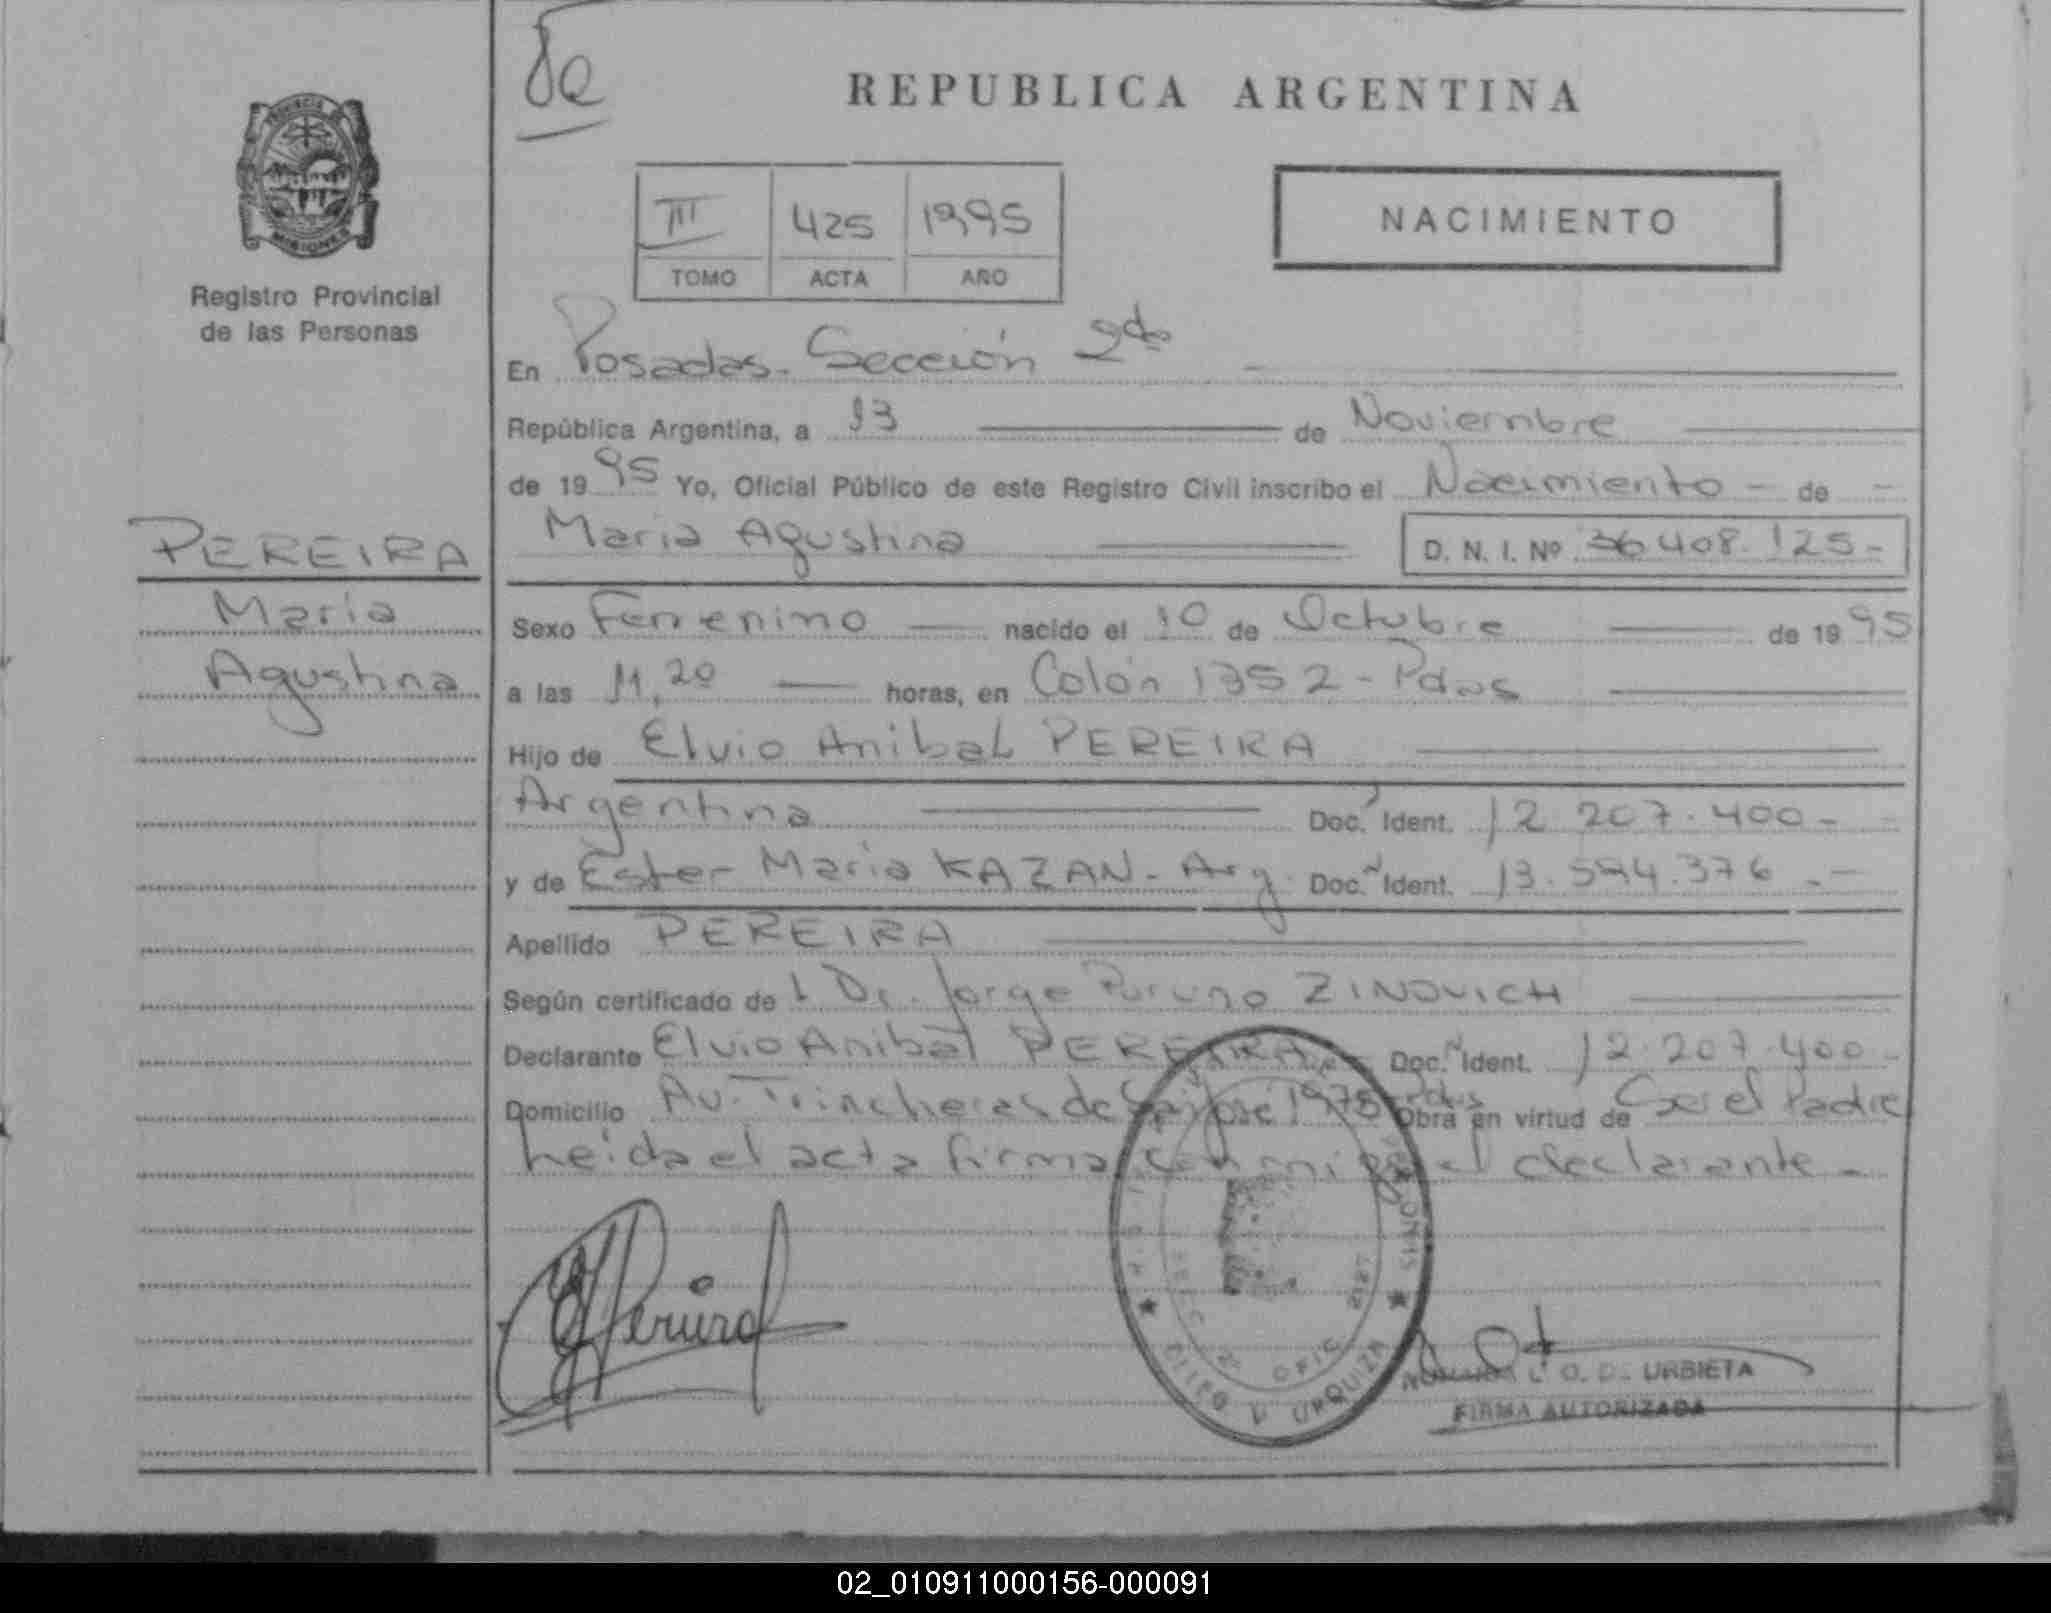 REPUBLICA ARGENTINA
PROVINCIA
MISIONES
Registro Provincial
de las Personas
III 425 1995
TOMO ACTA AÑO
NACIMIENTO
En Posadas. Sección 2da
República Argentina, a 13 de Noviembre
de 1995 Yo, Oficial Público de este Registro Civil inscribo el Nacimiento - de -
Maria Agustina D. N. I. Nº 36.408.125-
PEREIRA
María
Agustina
Sexo Femenino nacido el 10 de Octubre de 1995
a las 11,20 horas, en Colón 1352 - Pdas
Hijo de Elvio Anibal PEREIRA
Argentina Doc. Ident. 12.207.400-
y de Ester Maria KAZAN - Arg. Doc. Ident. 13.594.376.-
Apellido PEREIRA
Según certificado de l Dr. Jorge ZINOVICH
Declarante Elvio Anibal PEREIRA - Doc. Ident. 12.207.400-
Domicilio Av. Trincheras de San José 1975-Pdas Obra en virtud de Ser el Padre
Leida el acta firma conmigo el declarante -
URQUIZA
OFIC
L. O. D. URBIETA
FIRMA AUTORIZADA
02_010911000156-000091